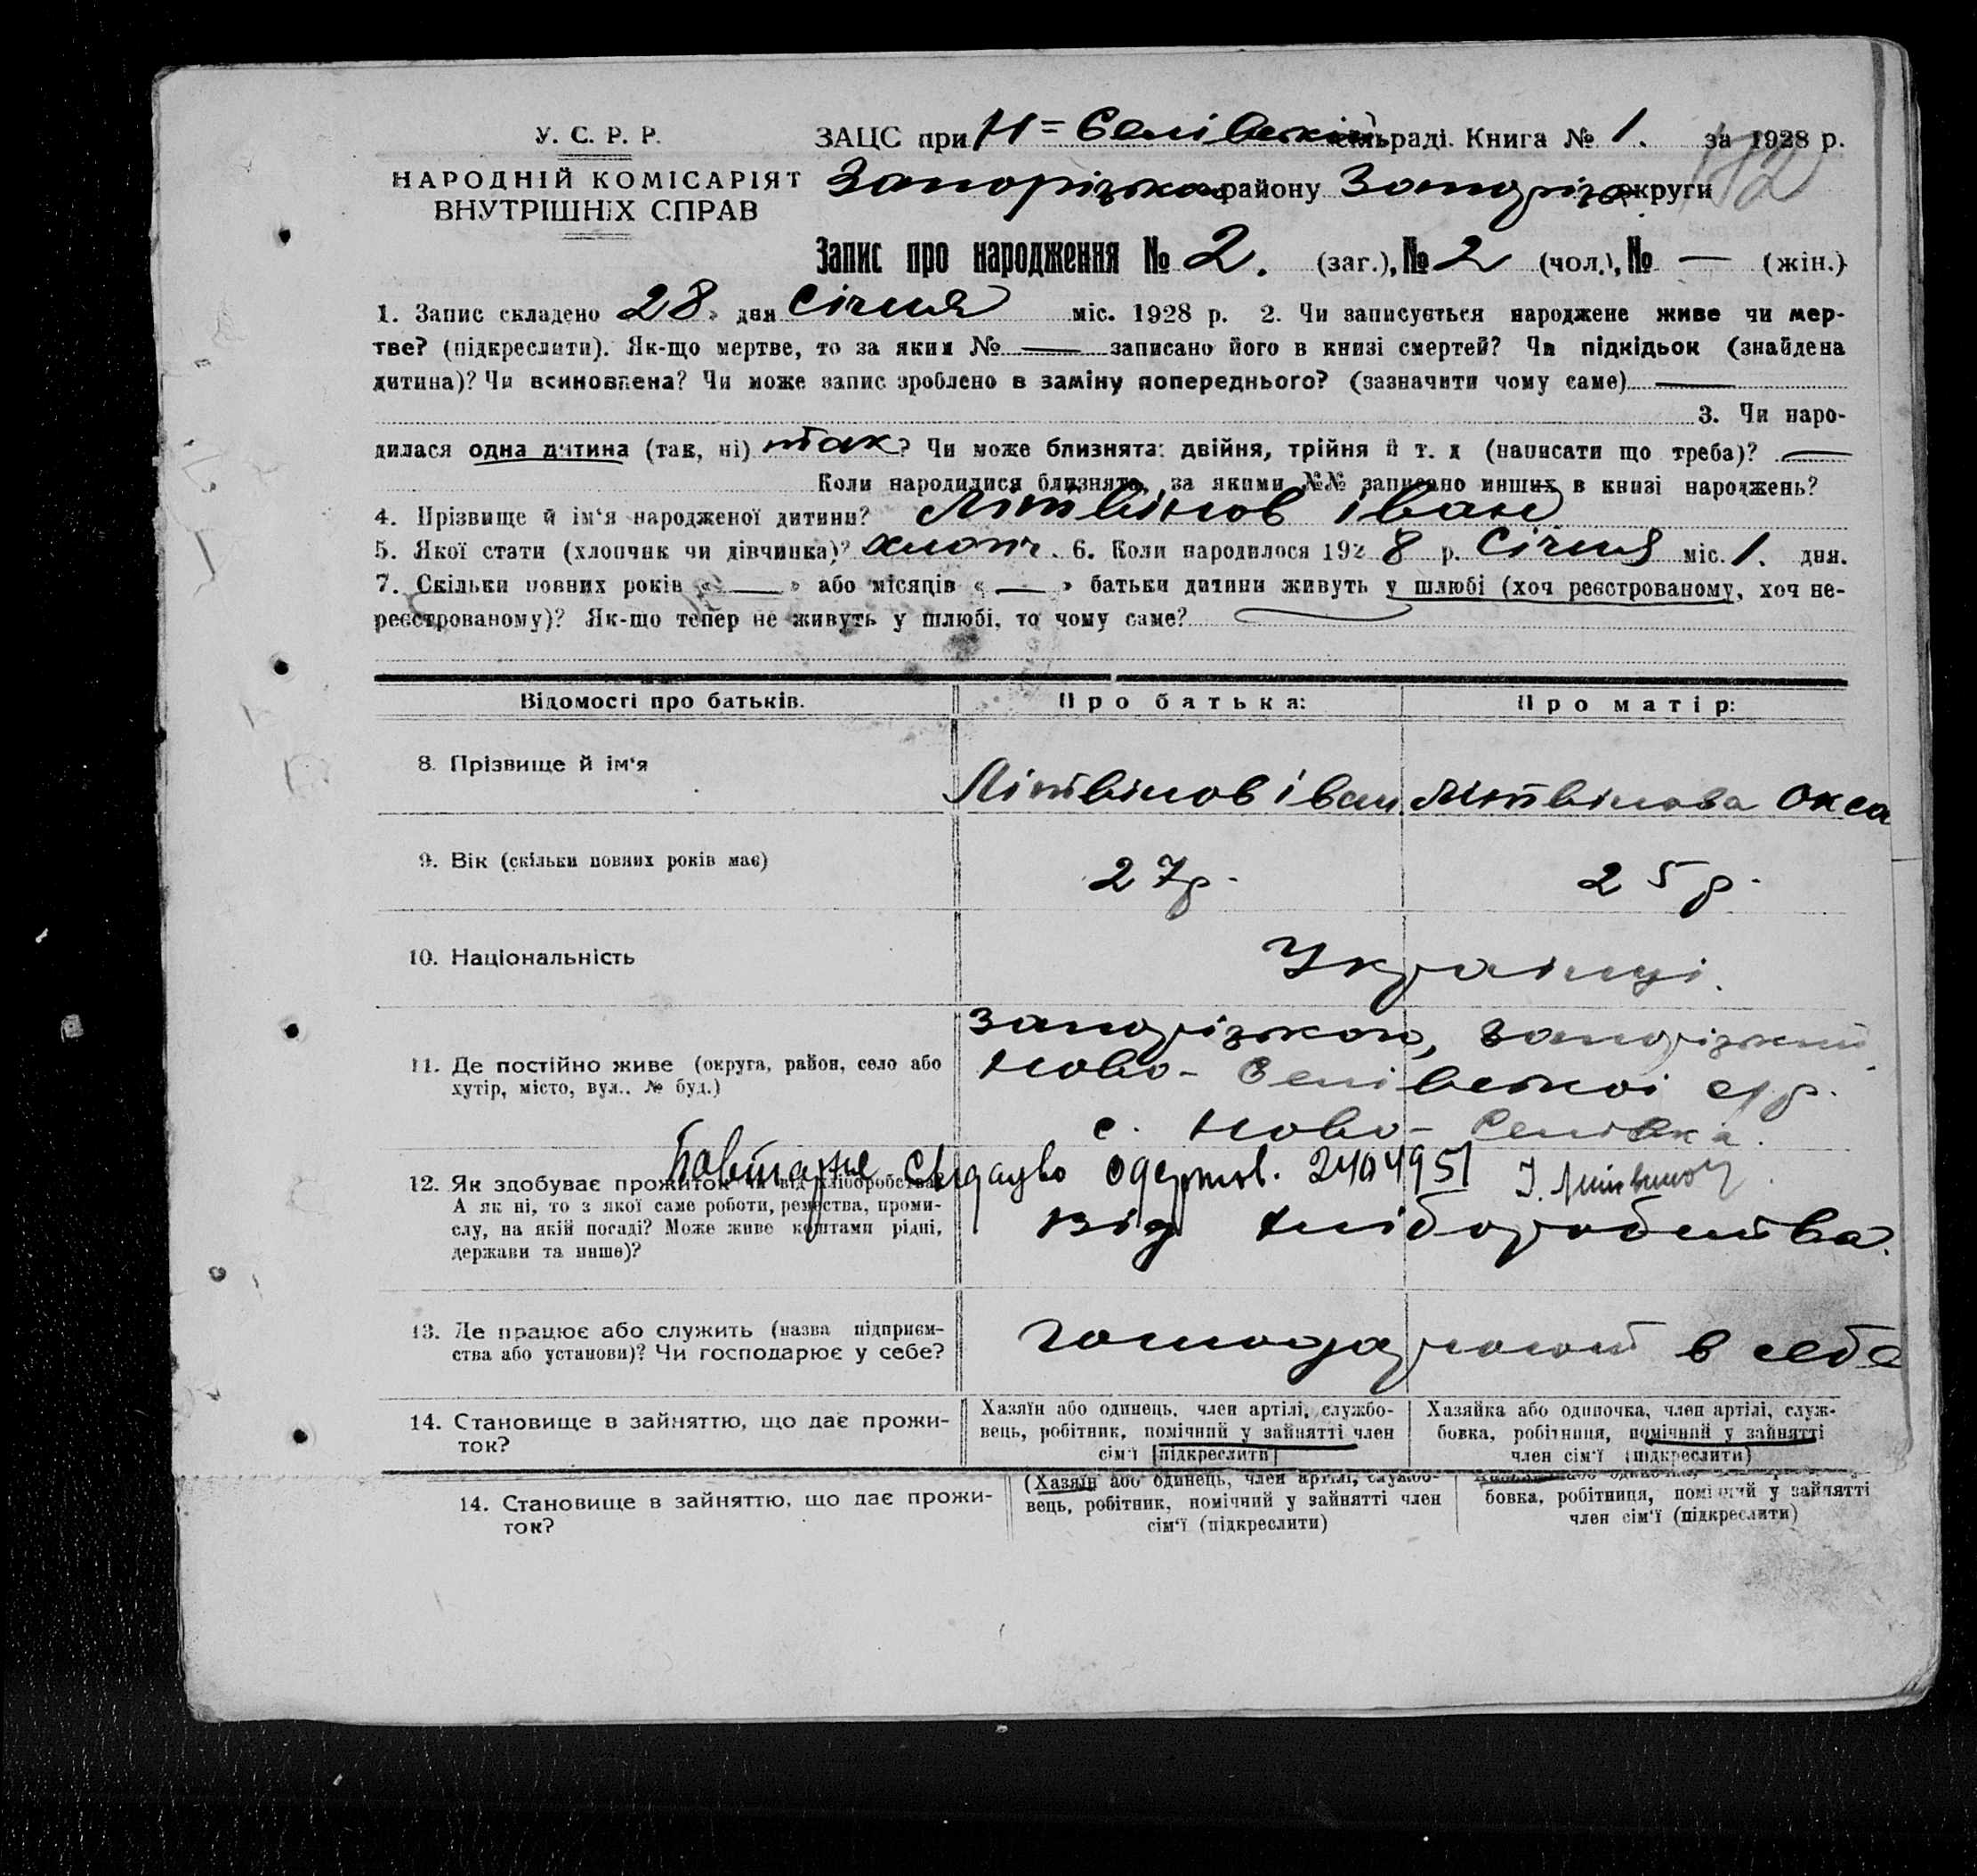 У. С. Р. Р.
НАРОДНІЙ КОМІСАРІЯТ
ВНУТРІШНІХ СПРАВ
ЗАЦС при Н=Селівській сільраді. Книга № 1. за 1928 р.
Запорізького району Запоріз. округи
Запис про народження № 2. (заг.), № 2 (чол.), № — (жін.)
1. Запис складено 28 дня Січня міс. 1928 р. 2. Чи записується народжене живе чи мер-
тве? (підкреслити). Як-що мертве, то за яким № — записано його в книзі смертей? Чи підкідьок (знайдена
дитина)? Чи всиновлена? Чи може запис зроблено в заміну попереднього? (зазначити чому саме) —
3. Чи наро-
дилася одна дитина (так, ні) так? Чи може близнята: двійня, трійня й т. д (написати що треба)? —
Коли народилися близнята, за якими №№ записано инших в книзі народжень?
4. Прізвище й ім'я народженої дитини? Літвінов Іван
5. Якої стати (хлопчик чи дівчинка)? хлопч. 6. Коли народилося 1928 р. Січня міс. 1. дня.
7. Скільки повних років «—» або місяців «—» батьки дитини живуть у шлюбі (хоч реєстрованому, хоч не-
реєстрованому)? Як-що тепер не живуть у шлюбі, то чому саме?
Відомості про батьків. Про батька: Про матір:
8. Прізвище й ім'я Літвінов Іван. Літвінова Окса
9. Вік (скільки повних років має) 27 р. 25 р.
10. Національність Українці.
11. Де постійно живе (округа, район, село або
хутір, місто, вул.. № буд.)
Запорізькою, Запорізький
Ново-Селівської с/р.
с. Ново-Селівка.
Повторне Свідоцво одержав. 24/IV 951 І. Літвинов
12. Як здобуває прожиток чи від хліборобства?
А як ні, то з якої саме роботи, ремества, проми-
слу, на якій посаді? Може живе коштами рідні,
держави та инше)?
Від хліборобства.
13. Де працює або служить (назва підприєм-
ства або установи)? Чи господарює у себе?
господарюют в себе
14. Становище в зайняттю, що дає прожи-
ток?
Хазяїн або одинець, член артілі, службо-
вець, робітник, помічний у зайнятті член
сім'ї (підкреслити)
Хазяйка або одиночка, член артілі, служ-
бовка, робітниця, помічний у зайнятті
член сім'ї (підкреслити)
14. Становище в зайняттю, що дає прожи-
ток?
(Хазяїн або одинець, член артілі, службо-
вець, робітник, помічний у зайнятті член
сім'ї (підкреслити)
бовка, робітниця, помічний у зайнятті
член сім'ї (підкреслити)